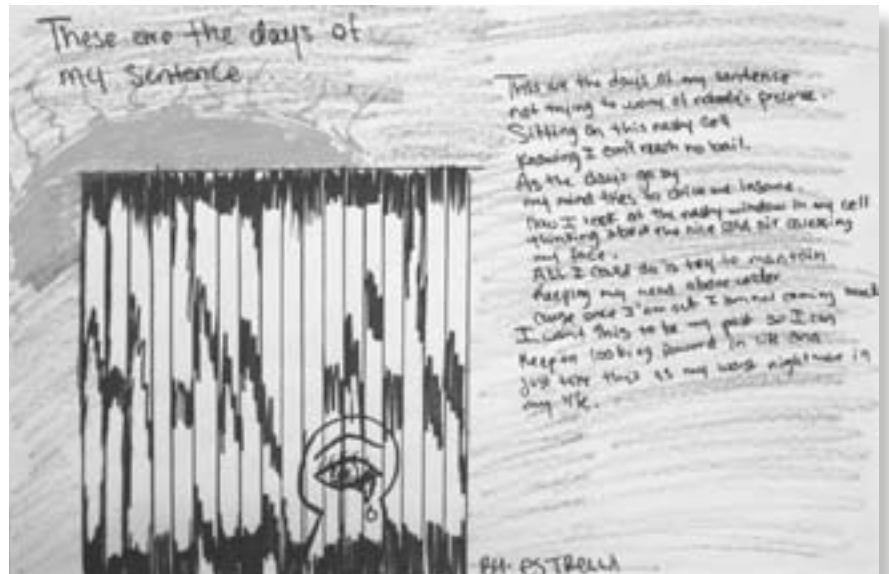 These are the days of
my sentence
This are the days of my sentence
not trying to worry of nobody's presence.
Sitting on this nasty cell
knowing I can't reach no bail.
As the days go by
my mind tries to drive me insane.
how I look at the nasty window in my cell
thinking about the nice cold air caressing
my face.
All I could do is try to maintain
keeping my head above water
cause once I'am out I am not coming back
I want this to be my past so I can
keep on looking foward in life and
just take this as my worst nightmare in
my life.
BY: ESTRELLA